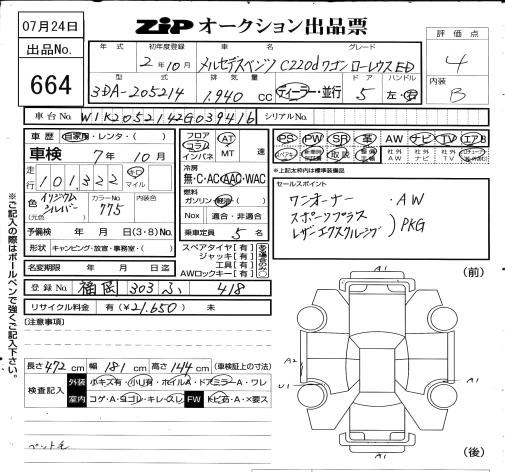 07月24日
ZiP オークション出品票
出品No.
664
年式 初年度登録 車名 グレード
2年10月 メルセデスベンツ C220dワゴン ローレウスED
型式 排気量 ドア ハンドル
3DA-205214 1,940 cc ディーラー・並行 5 左・右
評価点
4
内装
B
車台No. W1K2052142G039416 シリアルNo.
車歴 自家用・レンタ・( )
車検 7年10月
走行 101,322 キロ マイル
色 イリジウムシルバー カラーNo. 775 内装色
(元色)
予備検 年 月 日(3・8)No.
形状 キャンピング・放宣・事務室・( )
名変期限 年 月 日迄
登録No. 福岡 303 ふ 418
リサイクル料金 有(¥21,650) 未
フロア コラム インパネ AT MT 速
冷房 無・C・AC・AAC・WAC
燃料 ガソリン・軽油・( )
Nox 適合・非適合
乗車定員 5名
スペアタイヤ【有】
ジャッキ【有】
工具【有】
AWロックキー【有】
PS PW SR 革 AW ナビ TV エアB
スペアキー 取説 社外AW 社外ナビ 社外TV
※上記太枠内は標準装備品
セールスポイント
ワンオーナー ・AW
スポーツプラス
レザーエクスクルーシブ )PKG
[注意事項]
長さ 472 cm 幅 181 cm 高さ 144 cm (車検証上の寸法)
検査記入 外装 小キズ有・小U有・ホイルA・ドアミラーA・ワレ
室内 コゲ・A・ヨゴレ・キレ・スレ FW トビ石・A・×要ス
ペット毛
(前)
A1
A2
U1
A1
A1
(後)
※ご記入の際はボールペンで強くご記入下さい。